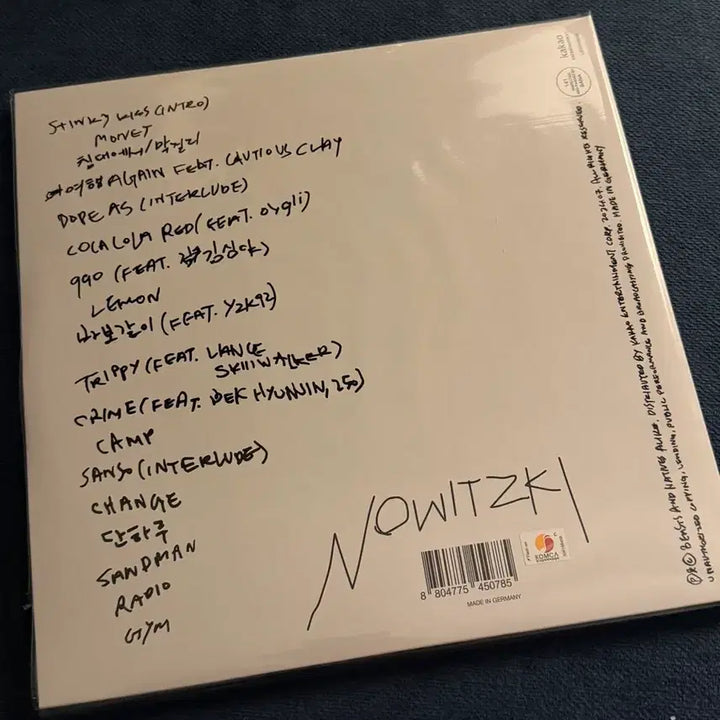 STINKY KISS (INTRO)
MONET
침대에서/막걸리
여행 AGAIN FEAT. CAUTIOUS CLAY
DOPE AS (INTERLUDE)
COCA COLA RED (FEAT. OYGLI)
990 (FEAT. 김심야)
LEMON
바보같이 (FEAT. Y2K92)
TRIPPY (FEAT. LANCE
SKIIIWALKER)
CRIME (FEAT. BEK HYUNJIN, 250)
CAMP
SANSO (INTERLUDE)
CHANGE
단하루
SANDMAN
RADIO
GYM
NOWITZKI
8 804775 450785
MADE IN GERMANY
KOMCA
kakao
ⓟ&ⓒ BEASTS AND NATIVES ALIKE, DISTRIBUTED BY KAKAO ENTERTAINMENT CORP. 2024.07. ALL RIGHTS RESERVED.
UNAUTHORIZED COPYING, LENDING, PUBLIC PERFORMANCE AND BROADCASTING PROHIBITED. MADE IN GERMANY